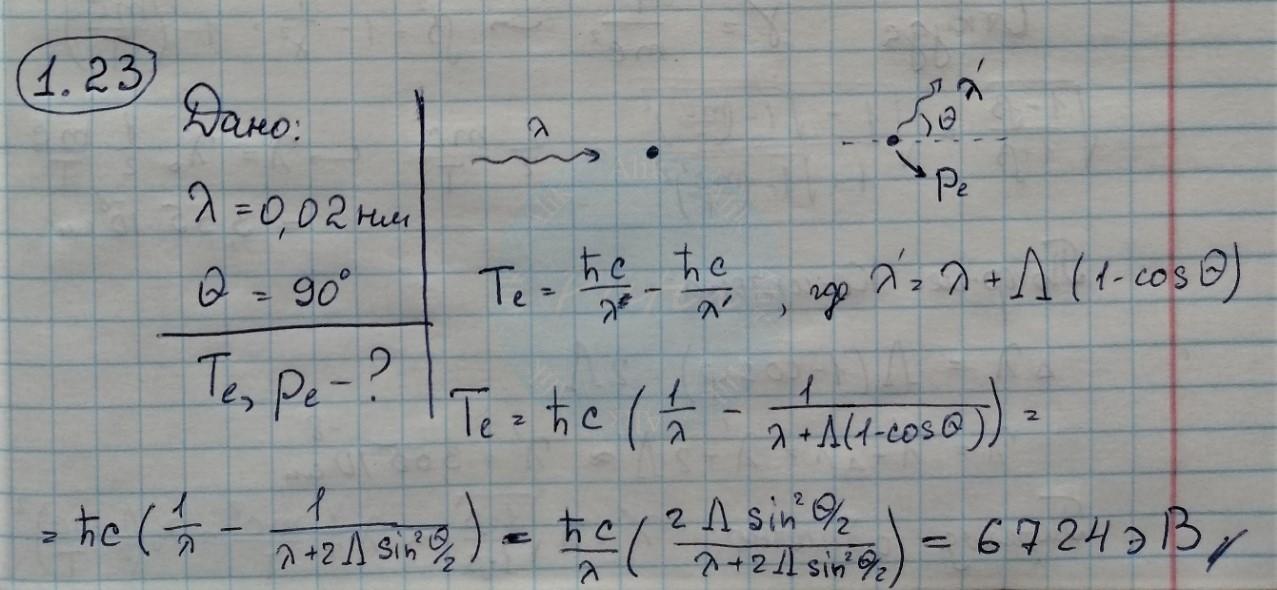 1.23
Дано:
λ = 0,02 нм
θ = 90°
Te, pe - ?
λ
λ'
θ
pe
Te = ħc/λ - ħc/λ' , где λ' = λ + Λ (1-cosθ)
Te = ħc (1/λ - 1/(λ+Λ(1-cosθ))) =
= ħc (1/λ - 1/(λ+2Λ sin² θ/2)) = ħc/λ (2Λ sin² θ/2 / (λ+2Λ sin² θ/2)) = 6724 эВ